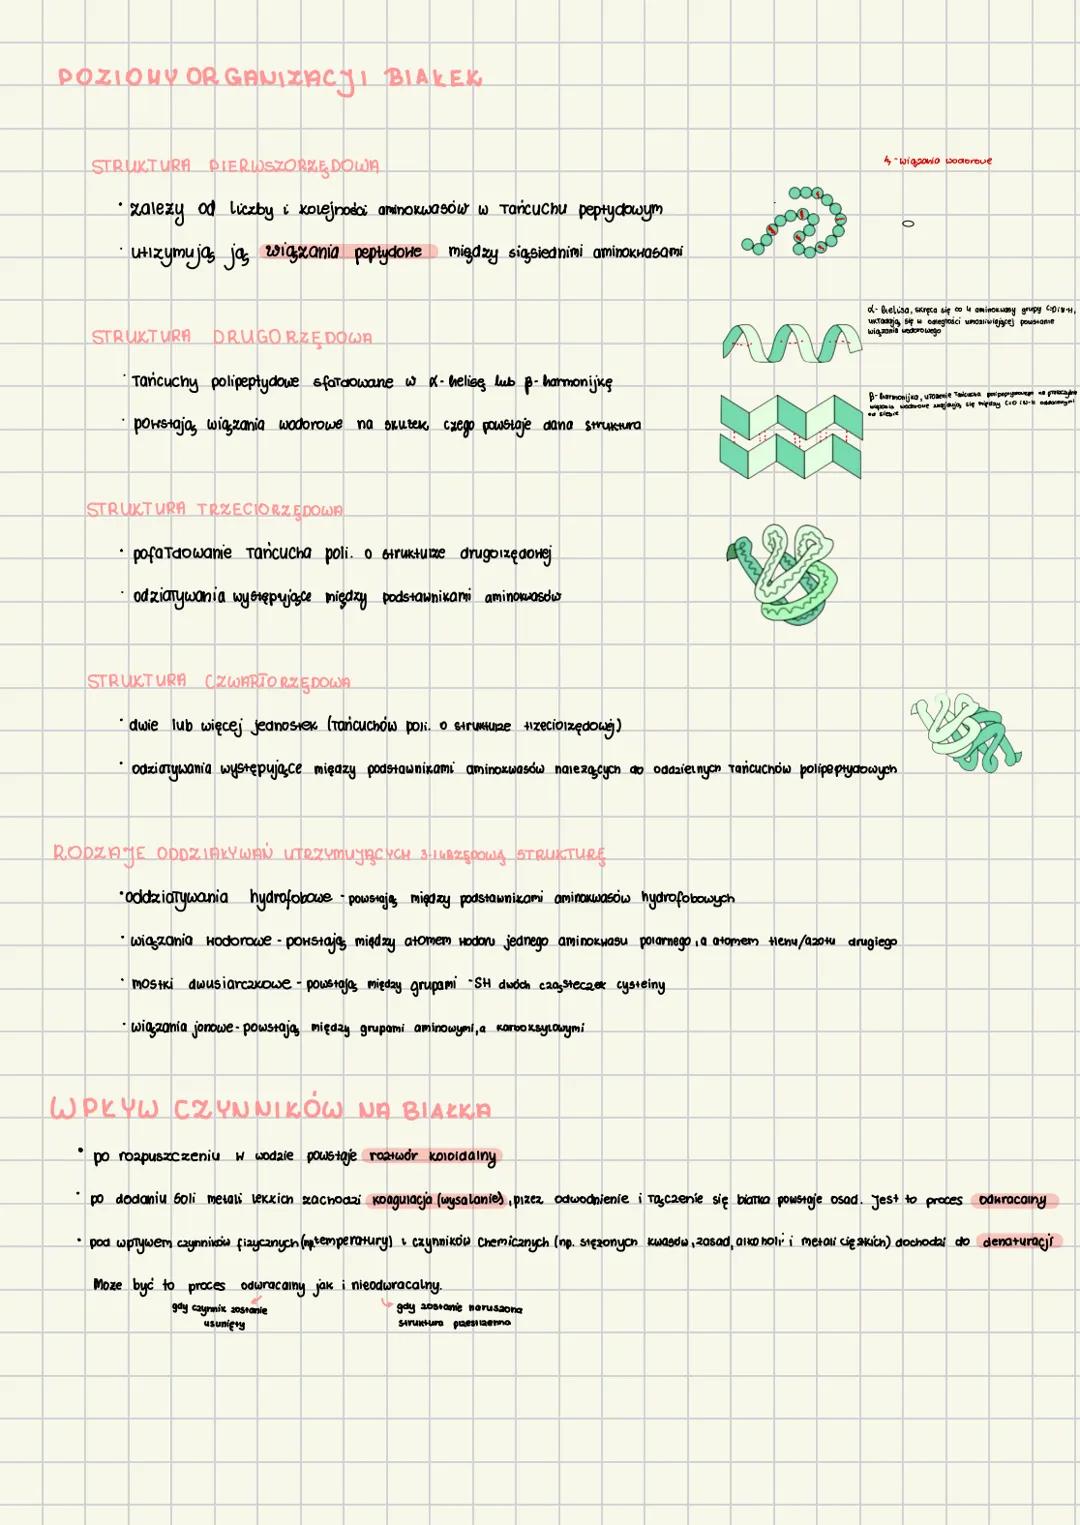 POZIOMY ORGANIZACJI BIAŁEK
STRUKTURA PIERWSZORZĘDOWA
wiązania wodorowe
· zależy od liczby i kolejności aminokwasów w łańcuchu peptydowym
· utrzymują ją wiązania peptydowe między sąsiednimi aminokwasami
STRUKTURA DRUGORZĘDOWA
α-helisa, skręca się co 4 aminokwasy grupy C=O i N-H,
układają się w odległości umożliwiającej powstanie
wiązania wodorowego
· łańcuchy polipeptydowe sfałdowane w α-helisę lub β-harmonijkę
β-harmonijka, ułożenie łańcucha polipeptydowego
wiązania wodorowe znajdują się między C=O i N-H oddalonymi
od siebie
· powstają wiązania wodorowe na skutek czego powstaje dana struktura
STRUKTURA TRZECIORZĘDOWA
· pofałdowanie łańcucha poli. o strukturze drugorzędowej
· odziaływania występujące między podstawnikami aminokwasów
STRUKTURA CZWARTORZĘDOWA
· dwie lub więcej jednostek (łańcuchów poli. o strukturze trzeciorzędowej)
· odziaływania występujące między podstawnikami aminokwasów należących do oddzielnych łańcuchów polipeptydowych
RODZAJE ODDZIAŁYWAŃ UTRZYMUJĄCYCH 3-I 4RZĘDOWĄ STRUKTURĘ
· oddziaływania hydrofobowe - powstają między podstawnikami aminokwasów hydrofobowych
· wiązania wodorowe - powstają między atomem wodoru jednego aminokwasu polarnego, a atomem tlenu/azotu drugiego
· mostki dwusiarczkowe - powstają między grupami -SH dwóch cząsteczek cysteiny
· wiązania jonowe - powstają między grupami aminowymi, a karboksylowymi
WPŁYW CZYNNIKÓW NA BIAŁKA
· po rozpuszczeniu w wodzie powstaje roztwór koloidalny
· po dodaniu soli metali lekkich zachodzi koagulacja (wysalanie), przez odwodnienie i łączenie się białka powstaje osad. Jest to proces odwracalny
· pod wpływem czynników fizycznych (np. temperatury) i czynników chemicznych (np. stężonych kwasów, zasad, alkoholi i metali ciężkich) dochodzi do denaturacji
Może być to proces odwracalny jak i nieodwracalny.
gdy czynnik zostanie
usunięty
gdy zostanie naruszona
struktura przestrzenna